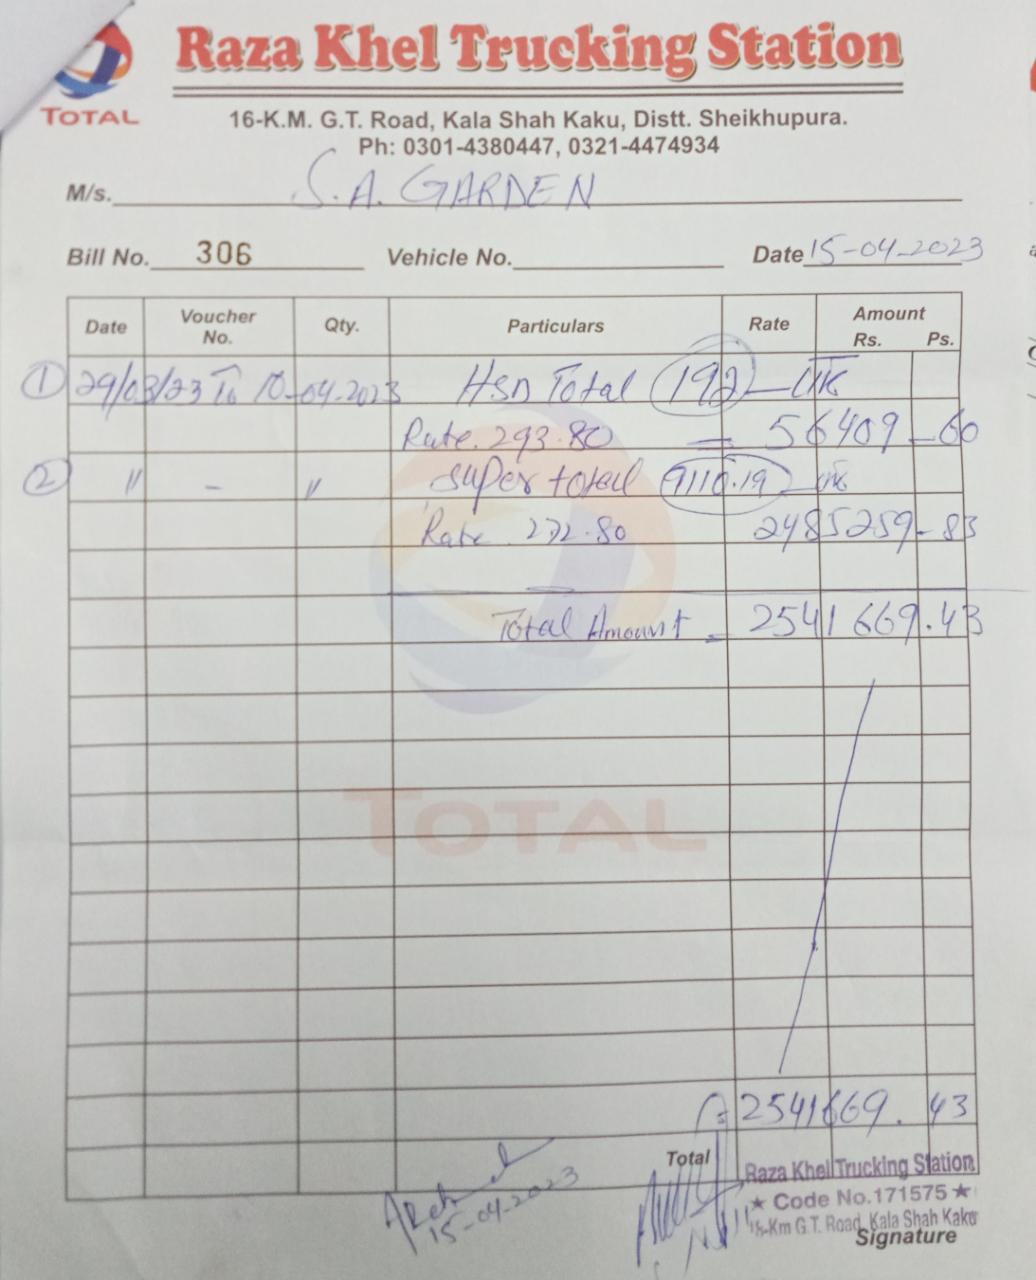 Raza Khel Trucking Station
TOTAL
16-K.M. G.T. Road, Kala Shah Kaku, Distt. Sheikhupura.
Ph: 0301-4380447, 0321-4474934
M/s. S.A. GARDEN
Bill No. 306 Vehicle No. Date 15-04-2023
Date Voucher No. Qty. Particulars Rate Amount Rs. Ps.
1 29/03/23 To 10-04-2023 HSD Total 192 - LTR
Rate. 293.80 = 56409 - 60
2 " - " super total 9110.19 - LTR
Rate. 272.80 2485259 - 83
Total Amount = 2541669.43
TOTAL
2541669. 43
Total
15-04-2023
Raza Khel Trucking Station
★ Code No.171575 ★
16-Km G.T. Road, Kala Shah Kaku
Signature